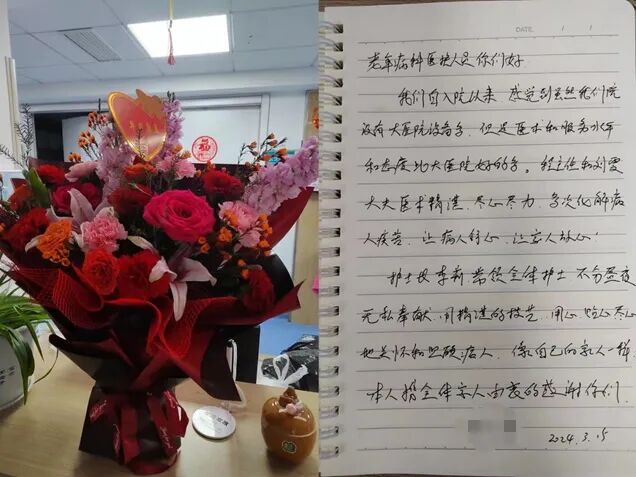 福
DATE
老年病科医护人员你们好
我们自入院以来,感觉到虽然我们院
没有大医院设备多,但是医术和服务水平
和态度比大医院好的多。程主任和刘雯
大夫医术精湛、尽心尽力、多次化解病
人疾苦、让病人舒心、让家人放心!
护士长李莉带领全体护士不分昼夜
无私奉献、用精湛的技艺、用心、贴心、尽心
地关怀和照顾病人、像自己的家人一样
本人携全体家人由衷的感谢你们.
2024.3.15